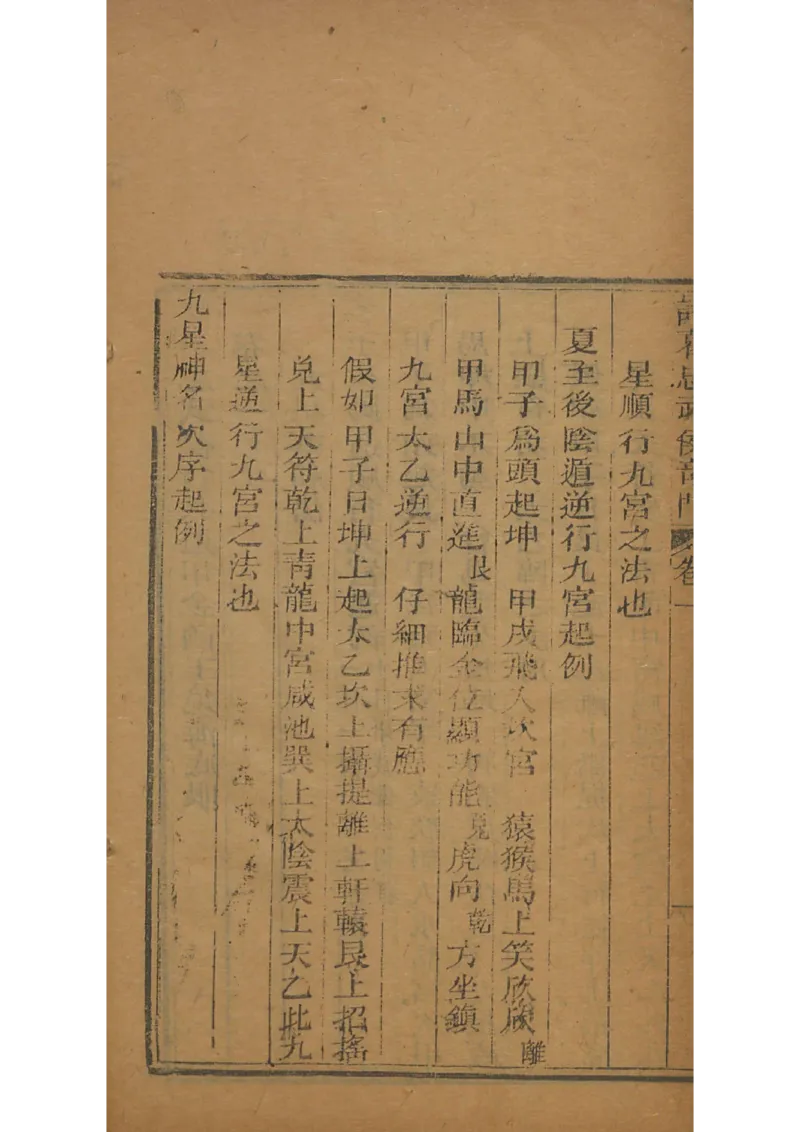 卷一
星順行九宮之法也
夏至後陰遁逆行九宮起例
甲子爲頭起坤　甲戌飛入坎宮　猿猴馬上笑欣欣離
甲馬山中直進艮龍臨金位顯功能兌虎向乾方坐鎮
九宮太乙逆行　仔細推求有應
假如甲子日坤上起太乙坎上攝提離上軒轅艮上招搖
兌上天符乾上靑龍中宮咸池巽上太陰震上天乙此九
星逆行九宮之法也
九星神名次序起例